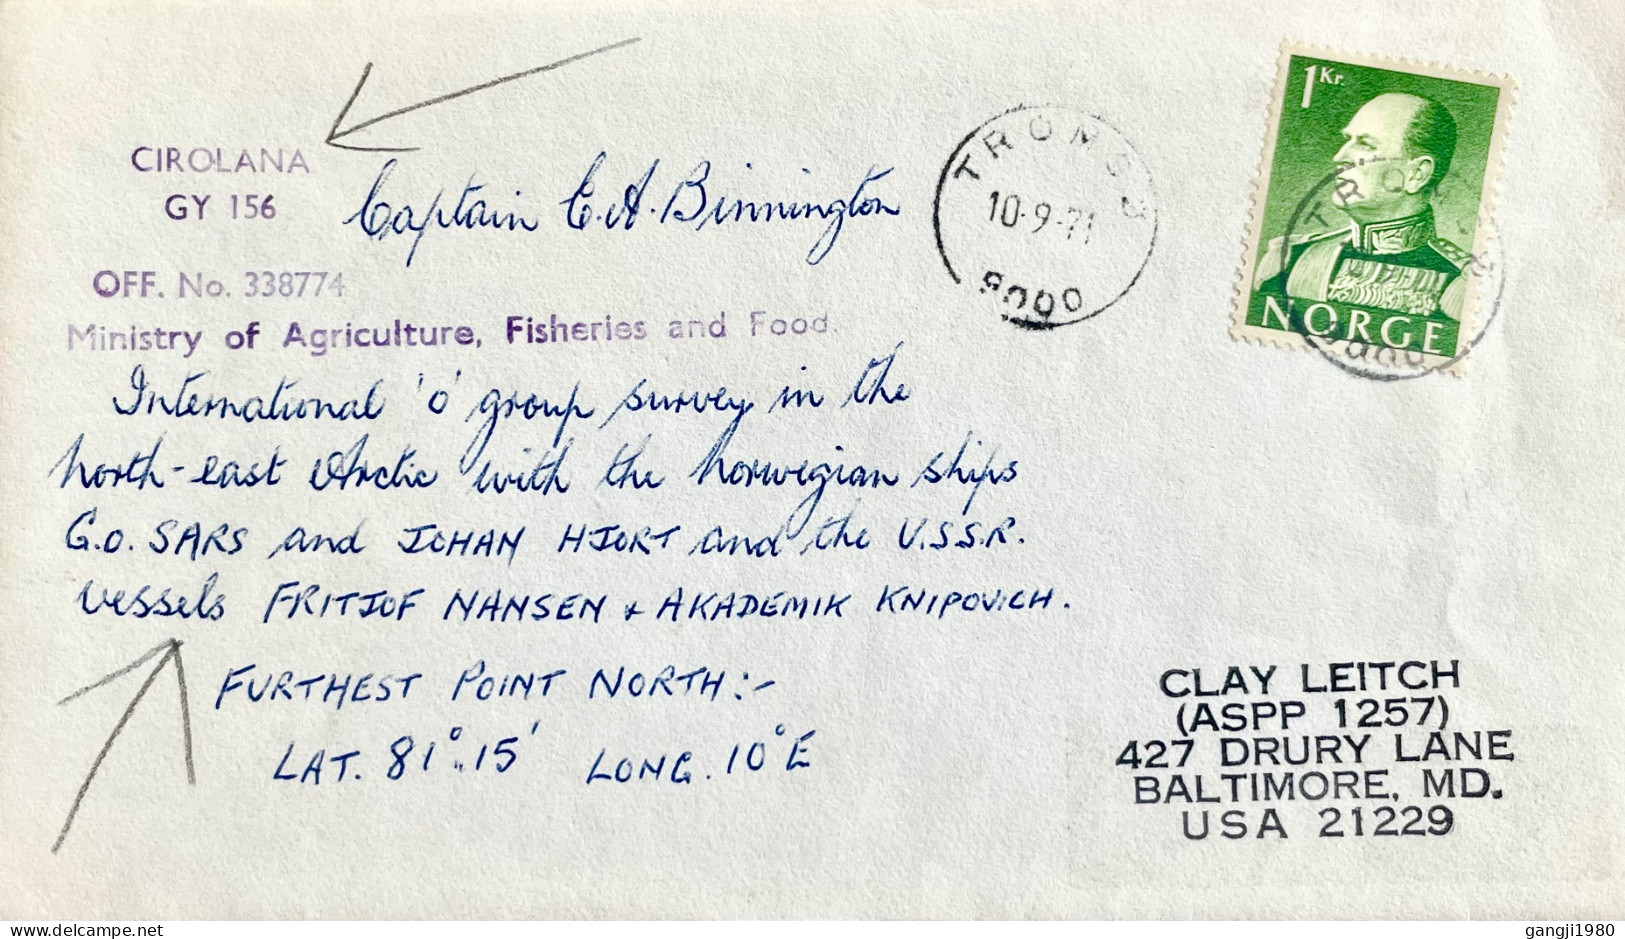 CIROLANA
GY 156
Captain E.A. Binnington
OFF. No. 338774
Ministry of Agriculture, Fisheries and Food.
International 'o' group survey in the
North-east Arctic with the Norwegian ships
G.O. SARS and JOHAN HJORT and the U.S.S.R.
vessels FRITJOF NANSEN + AKADEMIK KNIPOVICH.
FURTHEST POINT NORTH:-
LAT. 81°.15' LONG. 10°E
TROMSØ
10-9-71
9000
1 Kr.
NORGE
TROMSØ
9000
CLAY LEITCH
(ASPP 1257)
427 DRURY LANE
BALTIMORE, MD.
USA 21229
gangji1980